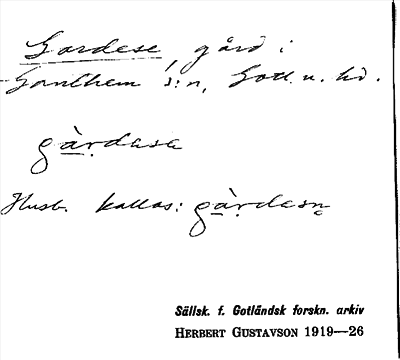 Gardese, gård i
Ganthem s:n, Gotl. n. hd.
gàṛdasa
Husb. kallas: gàṛdasn̥
Sällsk. f. Gotländsk forskn. arkiv
HERBERT GUSTAVSON 1919—26